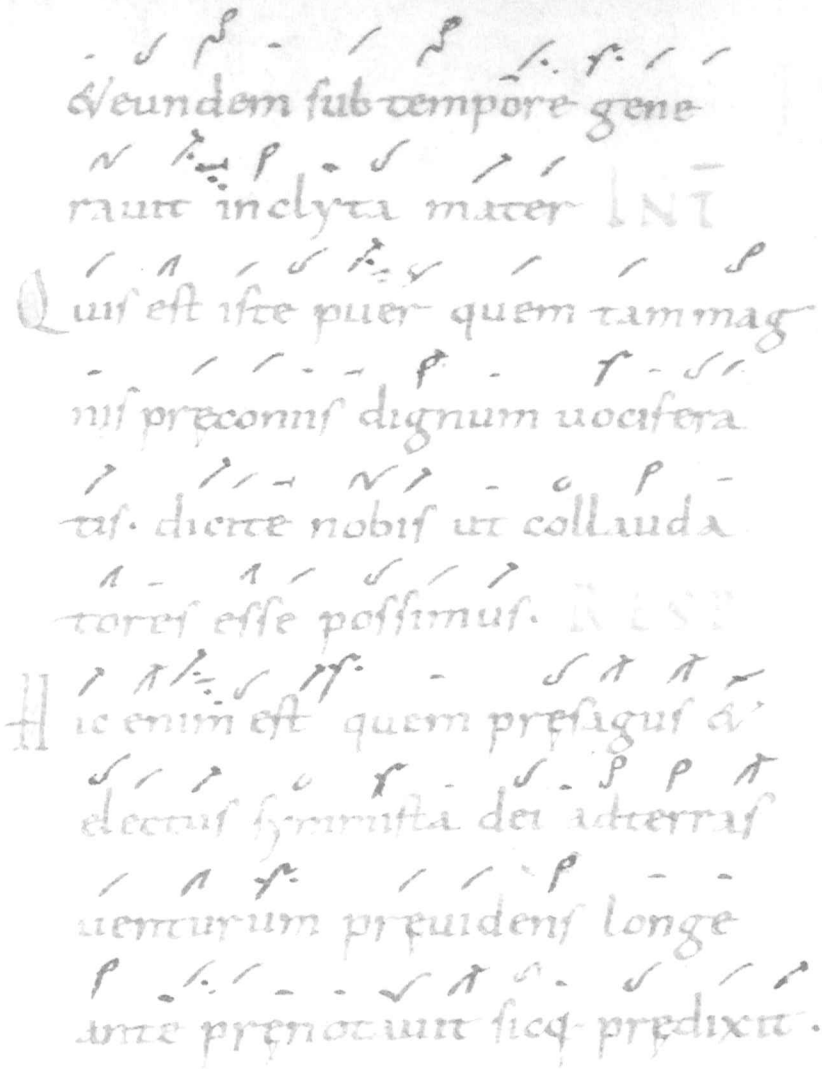 &eundem sub tempōre gene
rauit inclyta mater INT̄
Quis est iste puer quem tam mag
nis pręconiis dignum uocifera
tis. dicite nobis ut collauda
tores esse possimus. RESP
Hic enim est quem pręsagus &
electus symmista dei ad terras
uenturum pręuidens longe
ante pręnotauit sicq· prędixit.